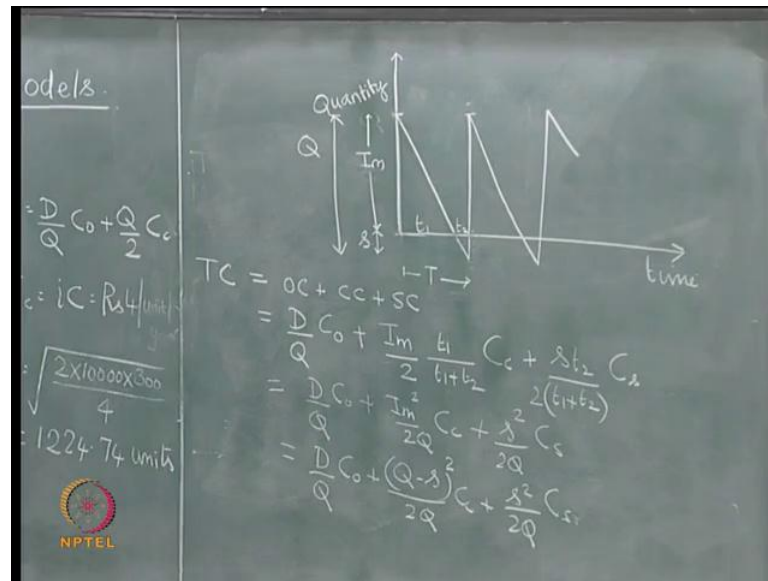 odels.
= D/Q C₀ + Q/2 C_c
c = iC = Rs4/unit/year
= √(2×10000×300 / 4)
= 1224.74 units
Quantity
Q
Im
s
t₁ t₂
T
time
TC = OC + CC + SC
= D/Q C₀ + Im/2 t₁/(t₁+t₂) C_c + st₂/2(t₁+t₂) C_s
= D/Q C₀ + Im²/2Q C_c + s²/2Q C_s
= D/Q C₀ + (Q-s)²/2Q C_c + s²/2Q C_s
NPTEL